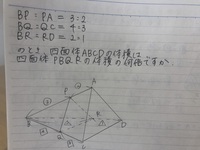 BP:PA = 3:2
BQ:QC = 4:3
BR:RD = 2:1
のとき、四面体ABCDの体積は
四面体PBQRの体積の何倍ですか。
A
P
R
D
Q